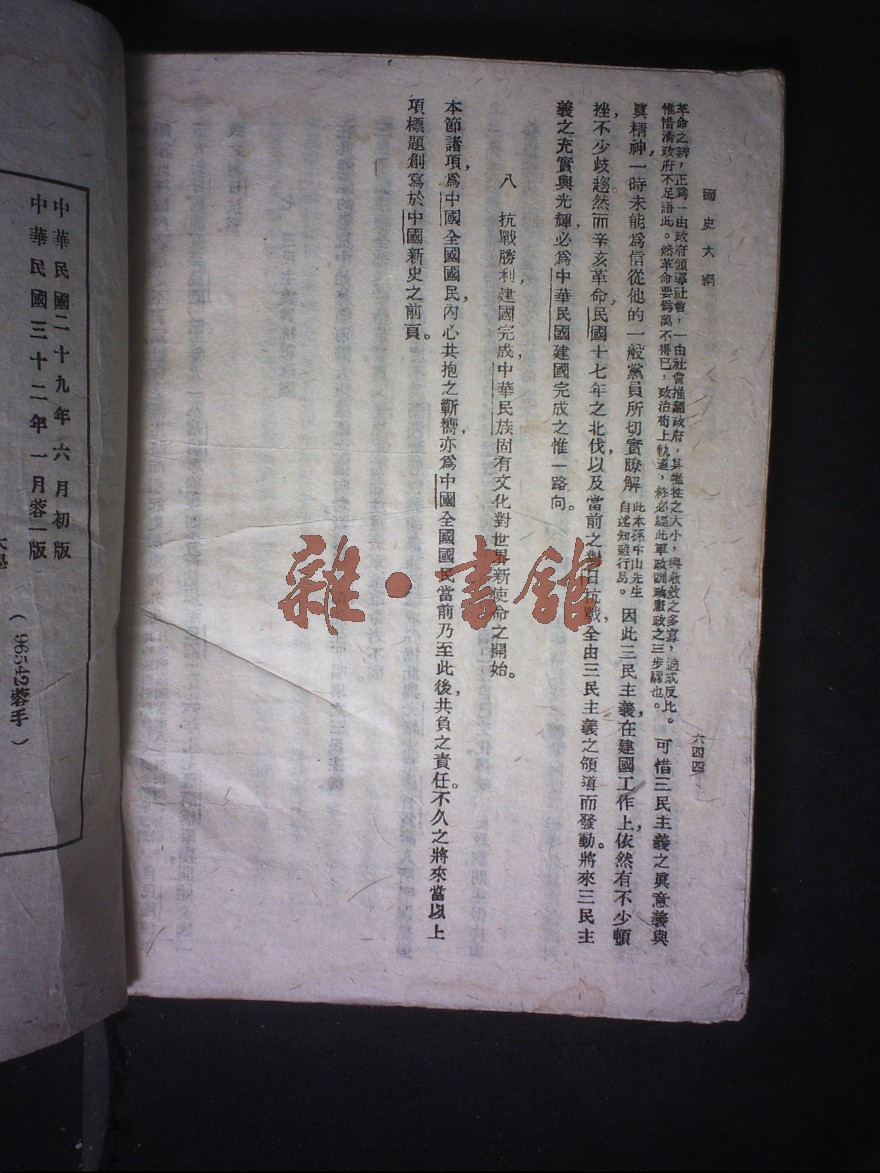 國史大綱
六四四
革命之辨，正爲一由政府領導社會，一由社會推翻政府，其犧牲之大小，與收效之多寡，適成反比。
惟惜清政府不足語此。然革命要爲萬不得已，政治苟上軌道，終必經此軍政訓政憲政之三步驟也。
可惜三民主義之眞意義與
眞精神，一時未能爲信從他的一般黨員所切實瞭解
此本孫中山先生
自述知難行易。
因此三民主義，在建國工作上，依然有不少頓
挫，不少歧趨。然而辛亥革命，民國十七年之北伐，以及當前之對日抗戰，全由三民主義之領導而發動。將來三民主
義之充實與光輝，必爲中華民國建國完成之惟一路向。
八　抗戰勝利，建國完成，中華民族固有文化對世界新使命之開始。
本節諸項，爲中國全國國民，內心共抱之蘄嚮，亦爲中國全國國民當前乃至此後共負之責任。不久之將來，當以上
項標題創寫於中國新史之前頁。
中華民國二十九年六月初版
中華民國三十二年一月蓉一版
（96542蓉手）
雜·書館